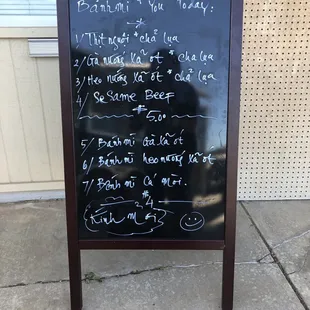 Bánh mì You Today:
1/ Thịt nguội * chả lụa
2/ Gà nướng xả ớt * chả lụa
3/ Heo nướng xả ớt * chả lụa
4/ SeSame Beef
5.00
5/ Bánh mì Gà xả ớt
6/ Bánh mì heo nướng xả ớt
7/ Bánh mì Cá mòi.
$4
Kính mời